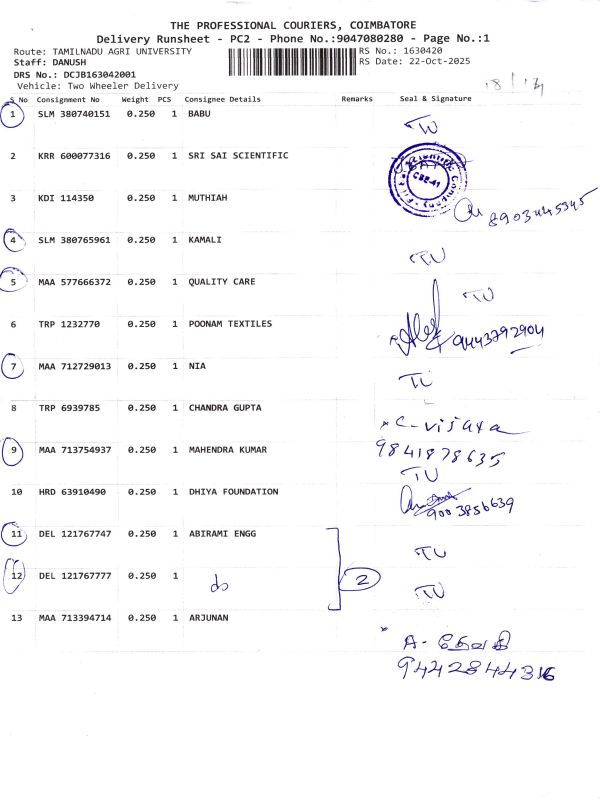 THE PROFESSIONAL COURIERS, COIMBATORE
Delivery Runsheet - PC2 - Phone No.:9047080280 - Page No.:1
Route: TAMILNADU AGRI UNIVERSITY RS No.: 1630420
Staff: DANUSH RS Date: 22-Oct-2025
DRS No.: DCJB163042001
Vehicle: Two Wheeler Delivery
S No Consignment No Weight PCS Consignee Details Remarks Seal & Signature
1 SLM 380740151 0.250 1 BABU TU
2 KRR 600077316 0.250 1 SRI SAI SCIENTIFIC
CBE-41
3 KDI 114350 0.250 1 MUTHIAH 8903445345
4 SLM 380765961 0.250 1 KAMALI TU
5 MAA 577666372 0.250 1 QUALITY CARE TU
6 TRP 1232770 0.250 1 POONAM TEXTILES 9443792904
7 MAA 712729013 0.250 1 NIA TU
8 TRP 6939785 0.250 1 CHANDRA GUPTA C-vijaya
9841878635
9 MAA 713754937 0.250 1 MAHENDRA KUMAR TU
10 HRD 63910490 0.250 1 DHIYA FOUNDATION 9003856639
11 DEL 121767747 0.250 1 ABIRAMI ENGG TU
12 DEL 121767777 0.250 1 do 2 TU
13 MAA 713394714 0.250 1 ARJUNAN A- தேவகி
9442844316